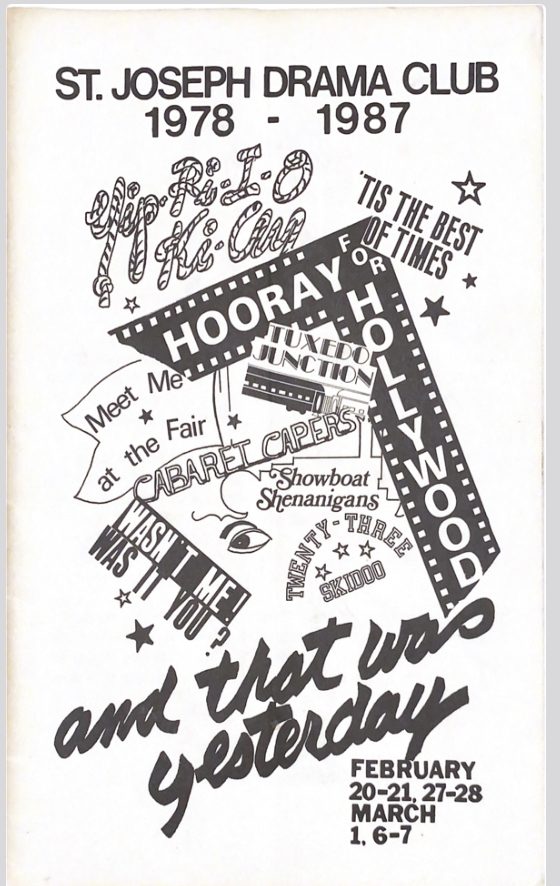 ST. JOSEPH DRAMA CLUB
1978 - 1987
Yip-Ri-I-O
Ki-Ay
'TIS THE BEST
OF TIMES
HOORAY
FOR
HOLLYWOOD
TUXEDO
JUNCTION
Meet Me
at the Fair
CABARET CAPERS
Showboat
Shenanigans
TWENTY-THREE
SKIDOO
WASN'T ME!
WAS IT YOU?
and that was
yesterday
FEBRUARY
20-21, 27-28
MARCH
1, 6-7